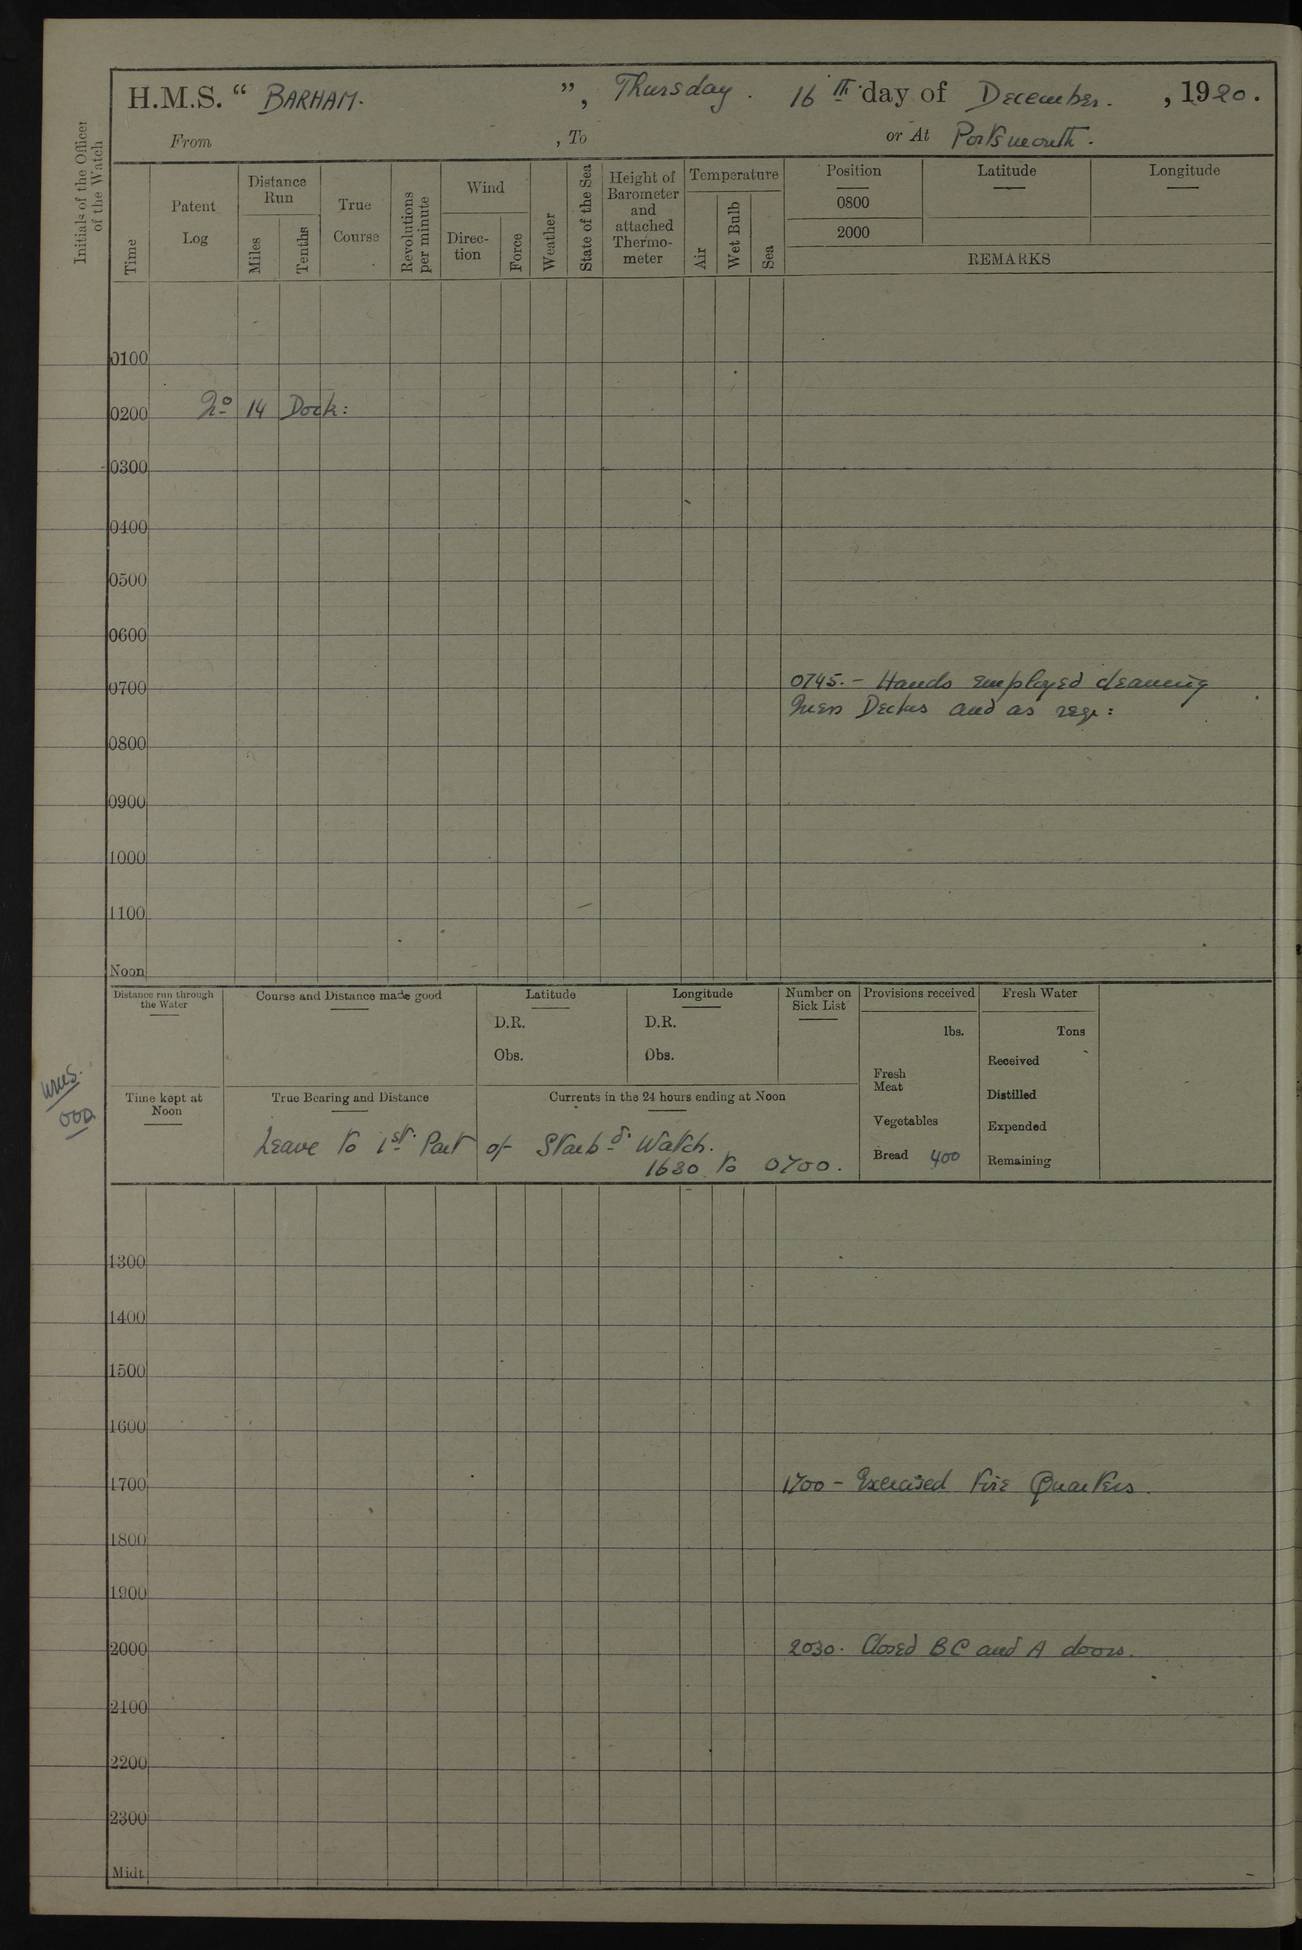 H.M.S. “ BARHAM. ”, Thursday. 16th day of December. , 1920.
From , To or At Portsmouth.
Initials of the Officer of the Watch
Time
Patent Log
Distance Run
Miles
Tenths
True Course
Revolutions per minute
Wind
Direc-
tion
Force
Weather
State of the Sea
Height of
Barometer
and
attached
Thermo-
meter
Temperature
Air
Wet Bulb
Sea
Position Latitude Longitude
0800
2000
REMARKS
0100
No 14 Dock:
0200
0300
0400
0500
0600
0745. – Hands employed cleaning
0700
Mess Decks and as req:
0800
0900
1000
1100
Noon
Distance run through
the Water
Course and Distance made good
Latitude
D.R.
Obs.
Longitude
D.R.
Obs.
Number on
Sick List
Provisions received
lbs.
Fresh
Meat
Vegetables
Bread 400
Fresh Water
Tons
Received
Distilled
Expended
Remaining
Time kept at
Noon
True Bearing and Distance
Currents in the 24 hours ending at Noon
Leave to 1st Part of Starbd Watch.
1630 to 0700.
1300
1400
1500
1600
1700
1700 – Exercised Fire Quarters.
1800
1900
2000
2030. Closed B C and A doors.
2100
2200
2300
Midt.